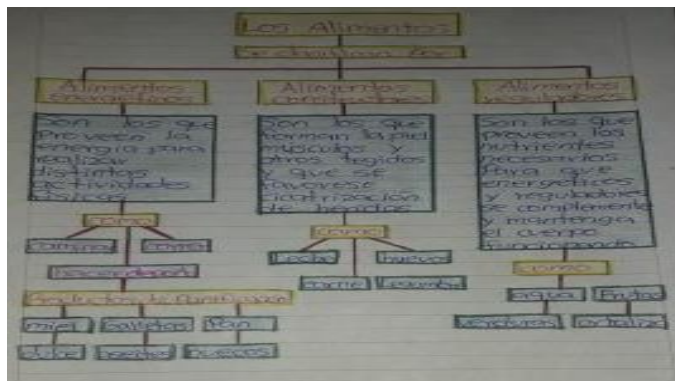 Los Alimentos
Se clasifican en:
Alimentos
energéticos
Son los que
proveen la
energía para
realizar
distintas
actividades
físicas
como
caminar
correr
hacer deport
Productos de Panificación
miel
Galletas
Pan
dulce
aceites
huecos
Alimentos
constructores
Son los que
forman la piel
músculos y
otros tegidos
y que se
favorese
cicatrización
de heridas
como
Leche
huevos
carne
Legumbr
Alimentos
reguladores
Son los que
proveen los
nutrientes
necesarios
Para que
energeticos
y reguladores
se complemente
y mantenga
el cuerpo
funcionando
como
agua
Frutas
verduras
ortaliza